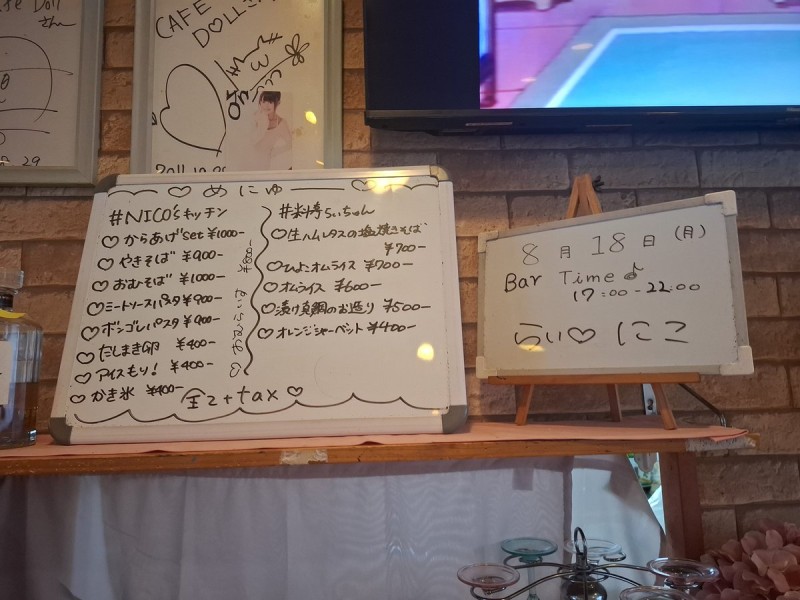 Doll
さん
29
CAFE
DOLLさん
2011.10.
♡ めにゅ
#NICO'sキッチン
♡からあげset ¥1000-
♡やきそば ¥900-
♡おむそば ¥1000-
♡ミートソースパスタ ¥900-
♡ボンゴレパスタ ¥900-
♡だしまき卵 ¥400-
♡アイスもり! ¥400-
♡かき氷 ¥400-
♡おむらいす ¥800-
らぃちゃん
♡生ハムレタスの塩焼きそば
¥700-
♡ひよこオムライス ¥700-
♡オムライス ¥600-
♡漬け真鯛のお造り ¥500-
♡オレンジシャーベット ¥400-
全て+tax♡
8月18日(月)
Bar Time♪
17:00-22:00
らぃ♡にこ